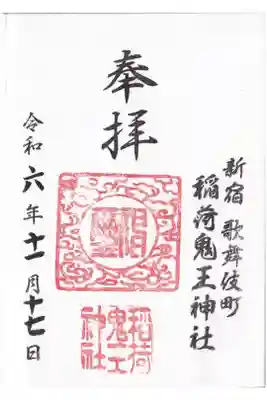 新宿 歌舞伎町
稲荷鬼王神社
奉拝
令和六年十一月十七日
稲荷
鬼王
神社